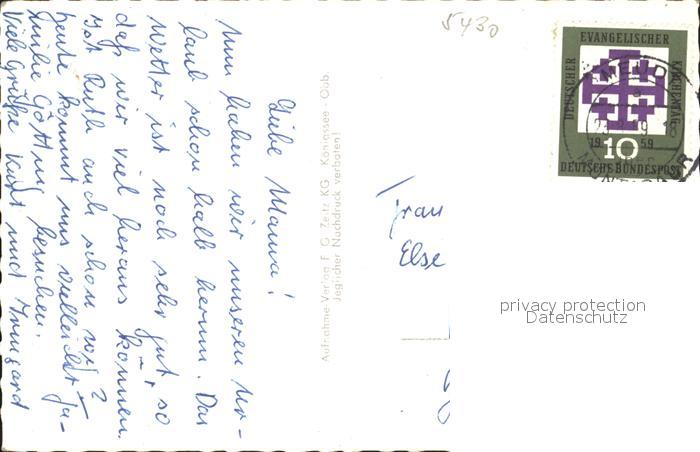 5430
Liebe Mama!
Nun haben wir unseren Ur-
laub schon halb herum. Das
Wetter ist noch sehr gut, so
daß wir viel heraus können.
Ist Ruth auch schon
heute kommt uns vielleicht Fa-
milie Götting besuchen.
Viele Grüße Karl und Irmgard
Aufnahme-Verlag F. G. Zeitz KG. Königssee - Obb.
Jeglicher Nachdruck verboten!
Frau
Else
EVANGELISCHER
KIRCHENTAG
DEUTSCHER
10
DEUTSCHE BUNDESPOST
privacy protection
Datenschutz